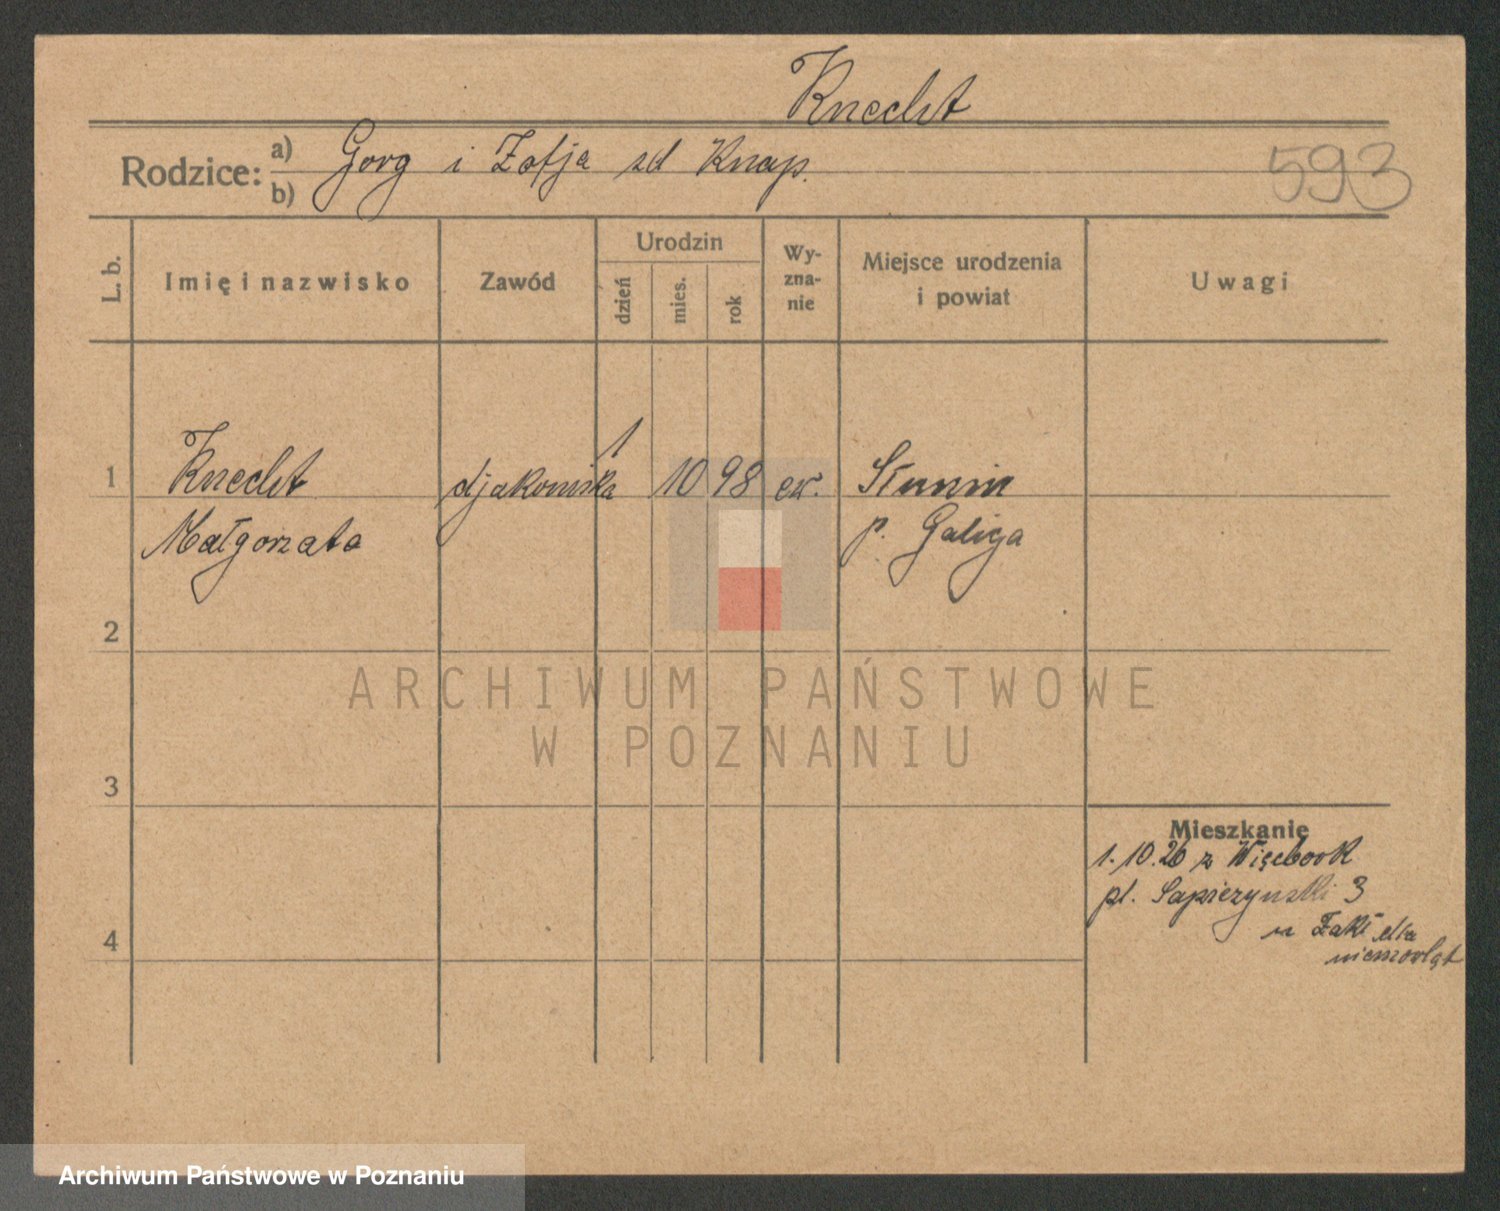 Knecht
Rodzice: a) Gorg i Zofja zd Knap.
b)
593
L. b.
Imię i nazwisko
Zawód
Urodzin
dzień
mies.
rok
Wy-
zna-
nie
Miejsce urodzenia
i powiat
Uwagi
1 Knecht djakoniska 1 10 98 ew.
Małgorzata
p. Galicja
2
3
4
Mieszkanie
1.10.26 z Więcbork
pl. Sapieżyński 3
Zakł dla
niemowląt
ARCHIWUM PAŃSTWOWE
W POZNANIU
Archiwum Państwowe w Poznaniu